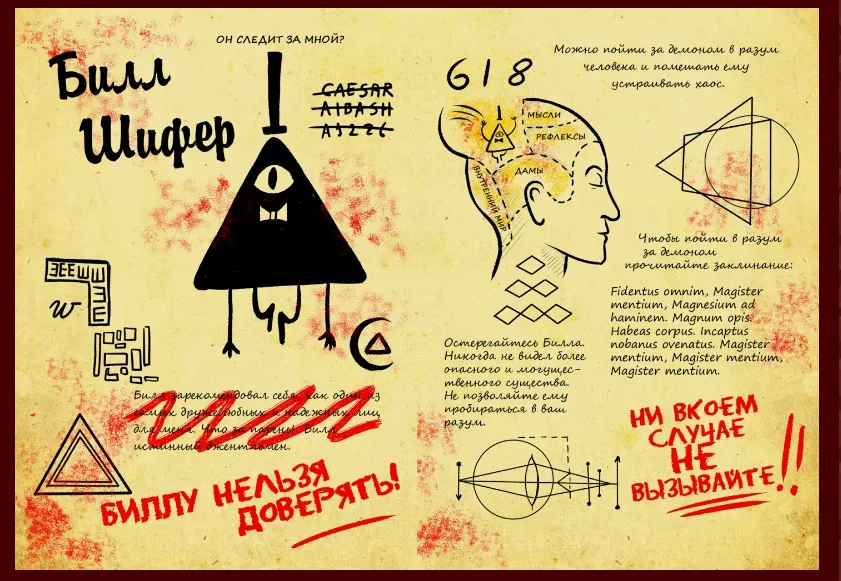 ОН СЛЕДИТ ЗА МНОЙ?
Билл
Шифер
CAESAR
ATBASH
A1Z26
w
Билл зарекомендовал себя, как один из
самых дружелюбных и надежных лиц
для меня. Что за парень! Билл
истинный джентльмен.
БИЛЛУ НЕЛЬЗЯ
ДОВЕРЯТЬ!
618
Можно пойти за демоном в разум
человека и помешать ему
устраивать хаос.
МЫСЛИ
РЕФЛЕКСЫ
ДАМЫ
ВНУТРЕННИЙ МИР
Чтобы пойти в разум
за демоном
прочитайте заклинание:
Fidentus omnim, Magister
mentium, Magnesium ad
haminem. Magnum opis.
Habeas corpus. Inceptus
nobanus ovenatus. Magister
mentium, Magister mentium,
Magister mentium.
Остерегайтесь Билла.
Никогда не видел более
опасного и могущес-
твенного существа.
Не позволяйте ему
пробираться в ваш
разум.
НИ ВКОЕМ
СЛУЧАЕ
НЕ
ВЫЗЫВАЙТЕ!!